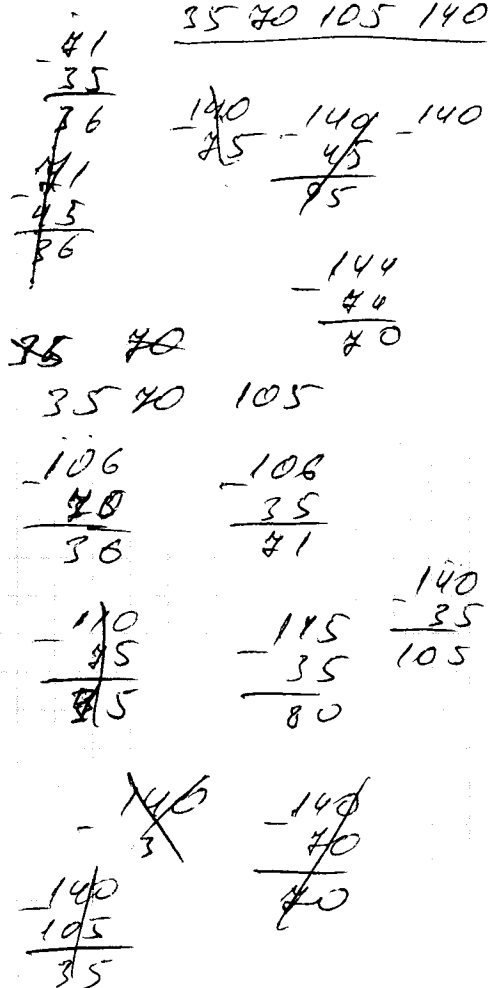 35 70 105 140
-71
35
36
-71
45
36
-140
75
-140
45
95
-140
-144
74
70
35 70
35 70 105
-106
70
36
-106
35
71
-110
75
-115
35
80
-140
35
105
-140
3
-140
70
70
-140
105
35